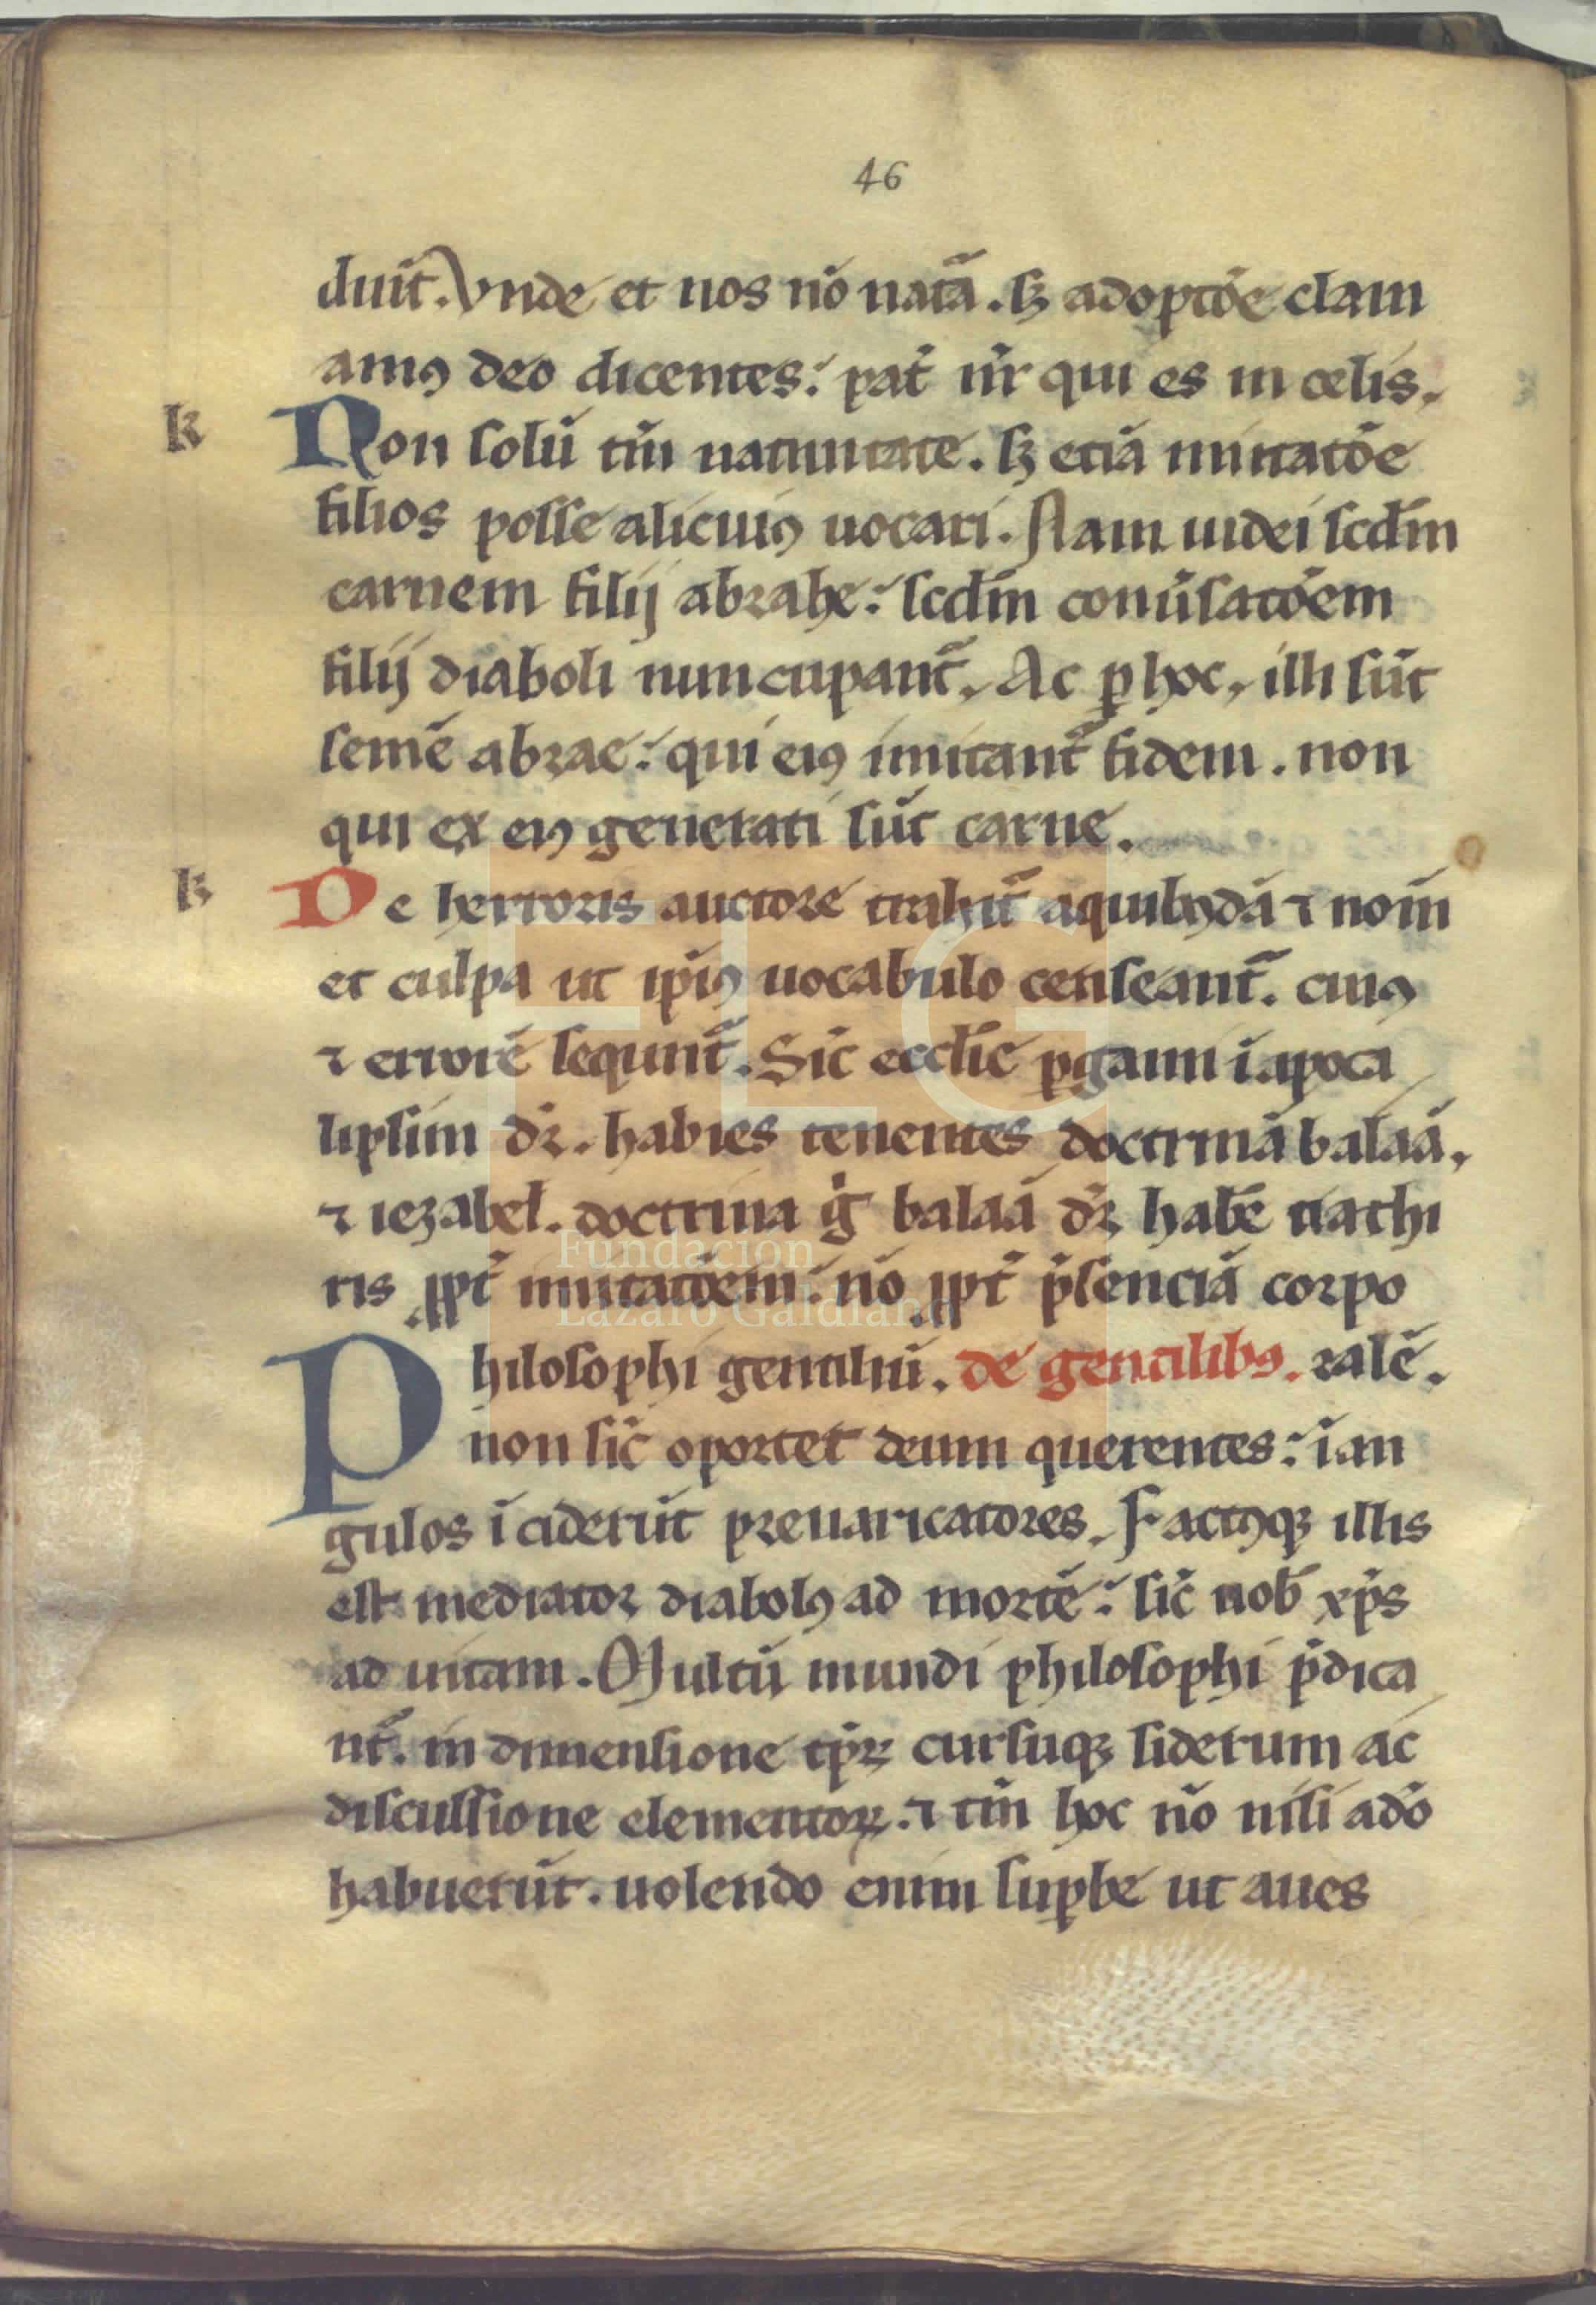 46
duit̃. Vnde et nos nõ natã. sꝫ adoptõe clam
amꝰ deo dicentes: pat̃ nr̃ qui es in celis.
k Non solũ tm̃ natiuitate. sꝫ etiã imitatõe
filios posse alicuiꝰ uocari. Nam iudei scd̃m
carnem filij abrahe: scd̃m conũsatõem
filij diaboli nuncupant̃. Ac ꝑ hoc, illi sũt
semẽ abrae: qui eiꝰ imitant̃ fidem. non
qui ex eiꝰ generati sũt carne.
k De herroris auctore trahũt̃ aquibꝰdã ⁊ nom̃
et culpa ut ip̃iꝰ uocabulo censeant̃. cuiꝰ
⁊ errorẽ sequnt̃. Sic̃ eccl̃ie ꝑgami ĩ apoca
lipsim dr̃. habẽs tenentes doctrinã balaã.
⁊ iezabel. doctrina g̃ balaã dr̃ habẽ tiathi
ris ꝓpt̃ imitatõem: nõ ꝓpt̃ p̃senciã corpo
Philosophi gentiliũ. de gentilibꝰ. ralẽ.
non sic̃ oportet deum querentes: ĩ an
gulos ĩciderũt preuaricatores. Factꝰqꝫ illis
est mediator diabolꝰ ad mortẽ: sic̃ nob̃ xp̃s
ad uitam. Multũ mundi philosophi p̃dica
nt̃. in dimensione tp̃ꝝ cursuqꝫ siderum ac
discussione elementoꝝ. ⁊ tm̃ hoc nõ nisi adõ
habuerũt. uolendo enim suꝑbe ut aues
Fundación
Lázaro Galdiano
FLG